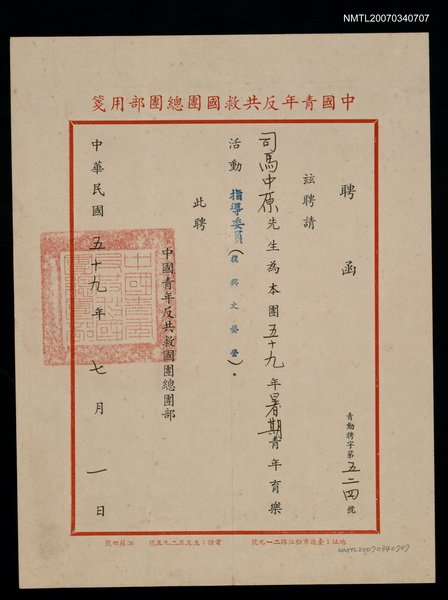 NMTL20070340707
中國青年反共救國團總團部用箋
聘函
青動聘字第五二四號
茲聘請
司馬中原先生為本團五十九年暑期青年育樂
活動指導委員(復興文藝營)。
此聘
中國青年反共救國團總團部
中華民國五十九年七月一日
地址：臺北市松江路二一九號
NMTL20070340707